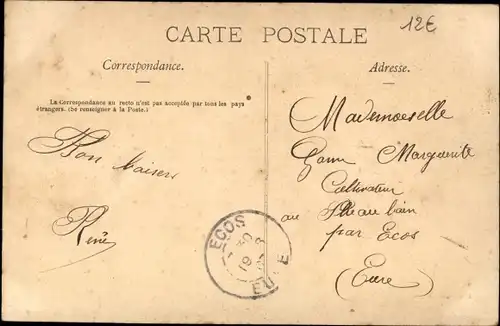 12€
CARTE POSTALE
Correspondance.
Adresse.
La Correspondance au recto n'est pas acceptée par tous les pays
étrangers. (Se renseigner à la Poste.)
Bon baisers
René
Mademoiselle
Marguerite
Cultivateur
au
par Ecos
(Eure)
ECOS
30
19
EURE